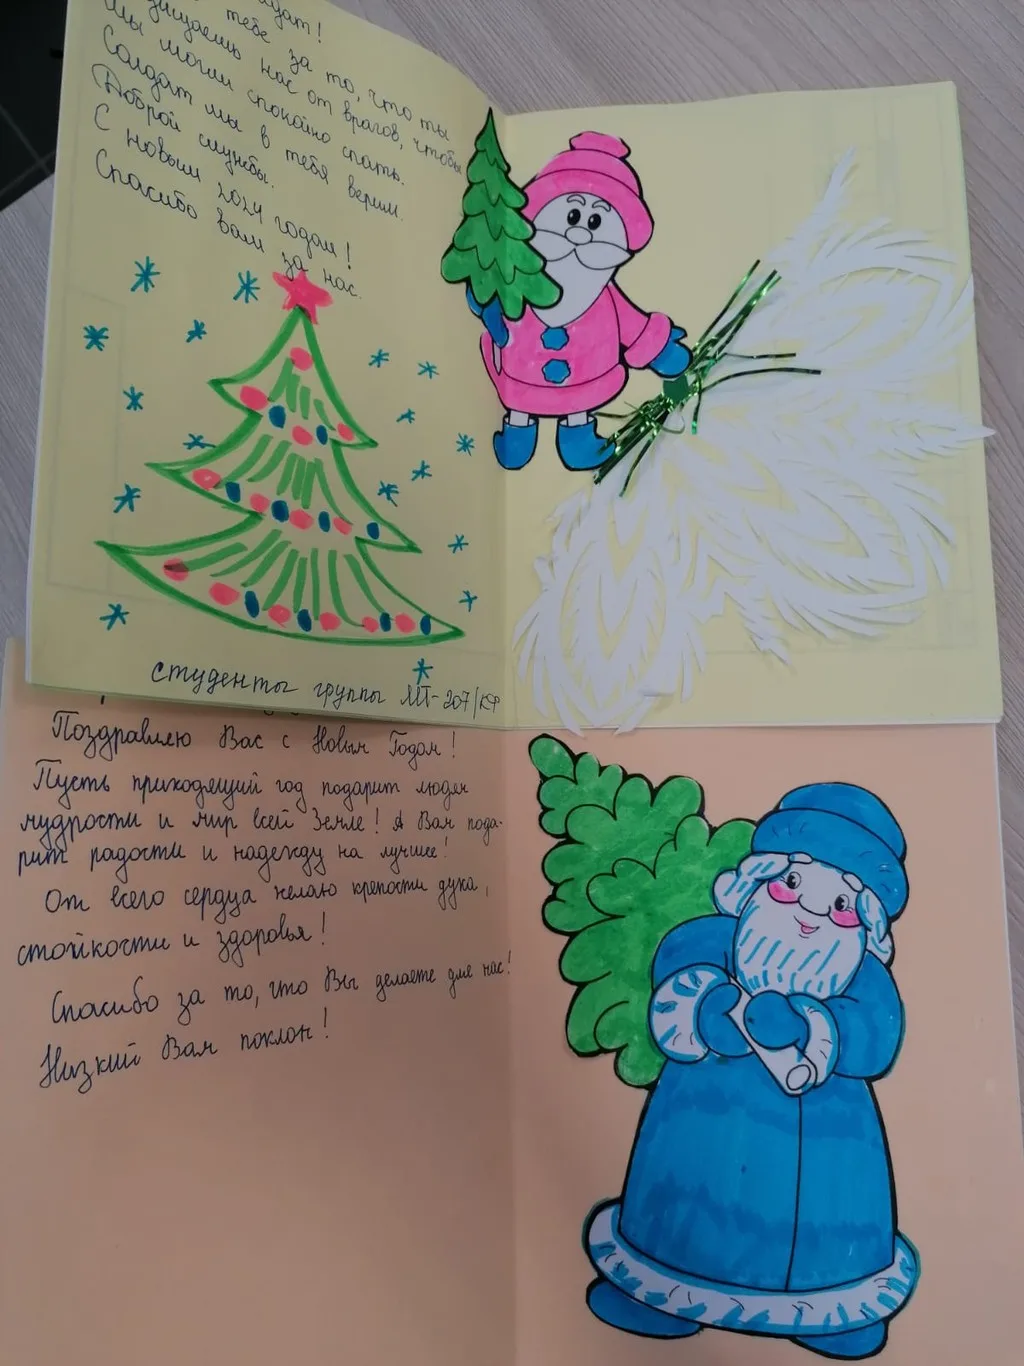 тебе за то, что ты
защищаешь нас от врагов, чтобы
мы могли спокойно спать.
Солдат мы в тебя верим.
Доброй службы.
С новым 2024 годом!
Спасибо вам за нас.
студенты группы МТ-207/КФ
Поздравляю Вас с Новым Годом!
Пусть приходящий год подарит людям
мудрости и мир всей Земле! А Вам пода-
рит радости и надежду на лучшее!
От всего сердца желаю крепости духа,
стойкости и здоровья!
Спасибо за то, что Вы делаете для нас!
Низкий Вам поклон!